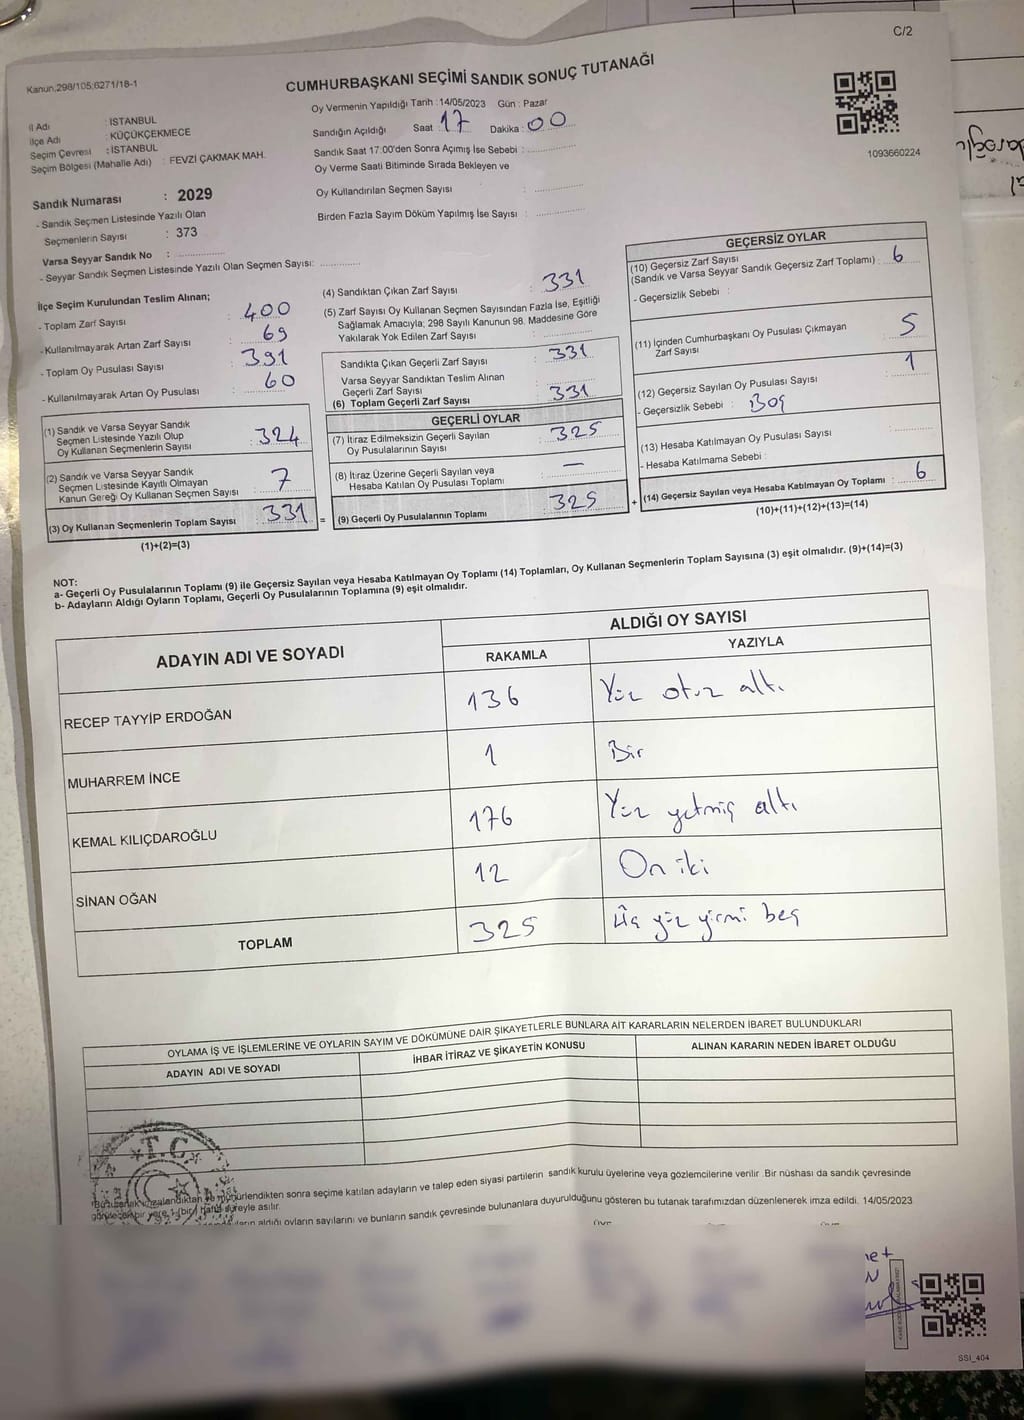 C/2
Kanun,298/105;6271/18-1
CUMHURBAŞKANI SEÇİMİ SANDIK SONUÇ TUTANAĞI
Oy Vermenin Yapıldığı Tarih :14/05/2023 Gün : Pazar
İl Adı : İSTANBUL
İlçe Adı : KÜÇÜKÇEKMECE
Seçim Çevresi : İSTANBUL
Seçim Bölgesi (Mahalle Adı) : FEVZİ ÇAKMAK MAH.
Sandığın Açıldığı Saat 17 Dakika : 00
Sandık Saat 17:00'den Sonra Açımış İse Sebebi :
Oy Verme Saati Bitiminde Sırada Bekleyen ve
Oy Kullandırılan Seçmen Sayısı :
Birden Fazla Sayım Döküm Yapılmış İse Sayısı :
1093660224
Sandık Numarası : 2029
- Sandık Seçmen Listesinde Yazılı Olan
Seçmenlerin Sayısı : 373
Varsa Seyyar Sandık No :
- Seyyar Sandık Seçmen Listesinde Yazılı Olan Seçmen Sayısı:
İlçe Seçim Kurulundan Teslim Alınan;
- Toplam Zarf Sayısı : 400
- Kullanılmayarak Artan Zarf Sayısı : 69
- Toplam Oy Pusulası Sayısı : 391
- Kullanılmayarak Artan Oy Pusulası : 60
(1) Sandık ve Varsa Seyyar Sandık
Seçmen Listesinde Yazılı Olup
Oy Kullanan Seçmenlerin Sayısı : 324
(2) Sandık ve Varsa Seyyar Sandık
Seçmen Listesinde Kayıtlı Olmayan
Kanun Gereği Oy Kullanan Seçmen Sayısı : 7
(3) Oy Kullanan Seçmenlerin Toplam Sayısı : 331
(1)+(2)=(3)
(4) Sandıktan Çıkan Zarf Sayısı : 331
(5) Zarf Sayısı Oy Kullanan Seçmen Sayısından Fazla İse, Eşitliği
Sağlamak Amacıyla; 298 Sayılı Kanunun 98. Maddesine Göre
Yakılarak Yok Edilen Zarf Sayısı :
Sandıkta Çıkan Geçerli Zarf Sayısı : 331
Varsa Seyyar Sandıktan Teslim Alınan
Geçerli Zarf Sayısı :
(6) Toplam Geçerli Zarf Sayısı : 331
=
GEÇERLİ OYLAR
(7) İtiraz Edilmeksizin Geçerli Sayılan
Oy Pusulalarının Sayısı : 325
(8) İtiraz Üzerine Geçerli Sayılan veya
Hesaba Katılan Oy Pusulası Toplamı : —
(9) Geçerli Oy Pusulalarının Toplamı : 325
+
GEÇERSİZ OYLAR
(10) Geçersiz Zarf Sayısı
(Sandık ve Varsa Seyyar Sandık Geçersiz Zarf Toplamı) : 6
- Geçersizlik Sebebi :
(11) İçinden Cumhurbaşkanı Oy Pusulası Çıkmayan
Zarf Sayısı : 5
(12) Geçersiz Sayılan Oy Pusulası Sayısı : 1
- Geçersizlik Sebebi : Boş
(13) Hesaba Katılmayan Oy Pusulası Sayısı :
- Hesaba Katılmama Sebebi :
(14) Geçersiz Sayılan veya Hesaba Katılmayan Oy Toplamı : 6
(10)+(11)+(12)+(13)=(14)
NOT:
a- Geçerli Oy Pusulalarının Toplamı (9) ile Geçersiz Sayılan veya Hesaba Katılmayan Oy Toplamı (14) Toplamları, Oy Kullanan Seçmenlerin Toplam Sayısına (3) eşit olmalıdır. (9)+(14)=(3)
b- Adayların Aldığı Oyların Toplamı, Geçerli Oy Pusulalarının Toplamına (9) eşit olmalıdır.
ADAYIN ADI VE SOYADI ALDIĞI OY SAYISI
RAKAMLA YAZIYLA
RECEP TAYYİP ERDOĞAN 136 Yüz otuz altı
MUHARREM İNCE 1 Bir
KEMAL KILIÇDAROĞLU 176 Yüz yetmiş altı
SİNAN OĞAN 12 On iki
TOPLAM 325 Üç yüz yirmi beş
OYLAMA İŞ VE İŞLEMLERİNE VE OYLARIN SAYIM VE DÖKÜMÜNE DAİR ŞİKAYETLERLE BUNLARA AİT KARARLARIN NELERDEN İBARET BULUNDUKLARI
ADAYIN ADI VE SOYADI İHBAR İTİRAZ VE ŞİKAYETİN KONUSU ALINAN KARARIN NEDEN İBARET OLDUĞU
T.C.
sonra seçime katılan adayların ve talep eden siyasi partilerin sandık kurulu üyelerine veya gözlemcilerine verilir .Bir nüshası da sandık çevresinde
bir yere 1 (bir) hafta süreyle asılır.
aldığı oyların sayılarını ve bunların sandık çevresinde bulunanlara duyurulduğunu gösteren bu tutanak tarafımızdan düzenlenerek imza edildi. 14/05/2023
SSI_404